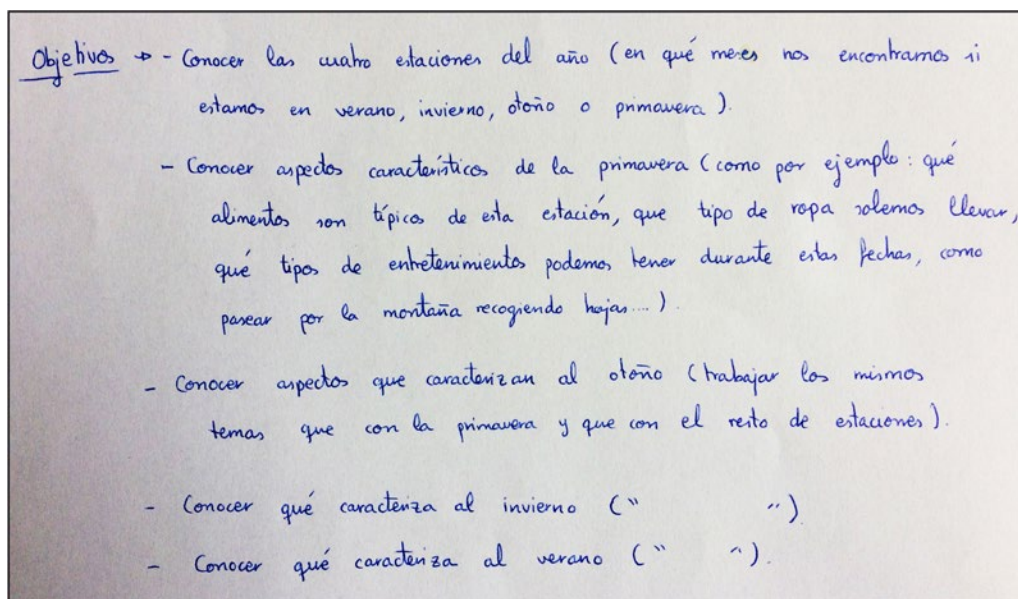 Objetivos → - Conocer las cuatro estaciones del año (en qué meses nos encontramos si
estamos en verano, invierno, otoño o primavera).
- Conocer aspectos característicos de la primavera (como por ejemplo: qué
alimentos son típicos de esta estación, que tipo de ropa solemos llevar,
qué tipos de entretenimientos podemos tener durante estas fechas, como
pasear por la montaña recogiendo hojas...).
- Conocer aspectos que caracterizan al otoño (trabajar los mismos
temas que con la primavera y que con el resto de estaciones).
- Conocer qué caracteriza al invierno (" ")
- Conocer qué caracteriza al verano (" ").